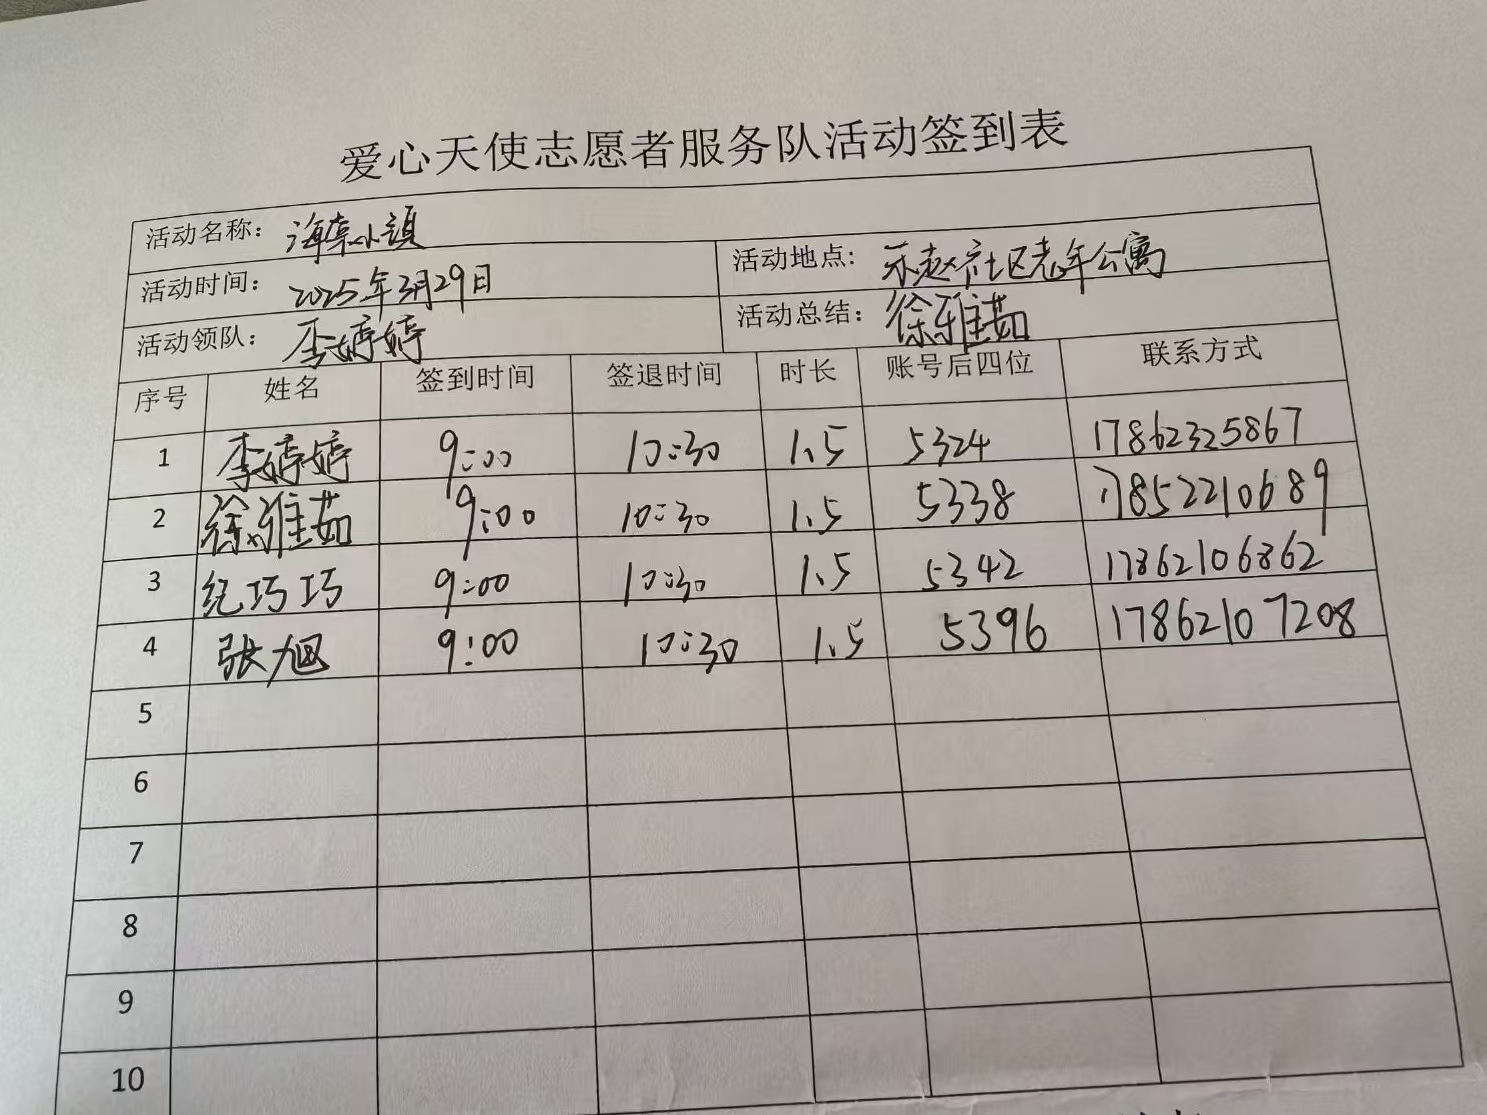 爱心天使志愿者服务队活动签到表
活动名称： 海棠小镇
活动时间： 2025年3月29日 活动地点: 乐赵社区老年公寓
活动领队： 李婷婷 活动总结： 徐雅茹
序号 姓名 签到时间 签退时间 时长 账号后四位 联系方式
1 李婷婷 9:00 10:30 1.5 5324 17862325867
2 徐雅茹 9:00 10:30 1.5 5338 17852210689
3 纪巧巧 9:00 10:30 1.5 5342 17862106862
4 张旭 9:00 10:30 1.5 5396 17862107208
5
6
7
8
9
10